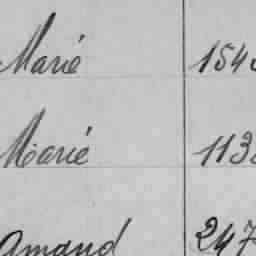 Marié 154
Marié 113
Amand 247